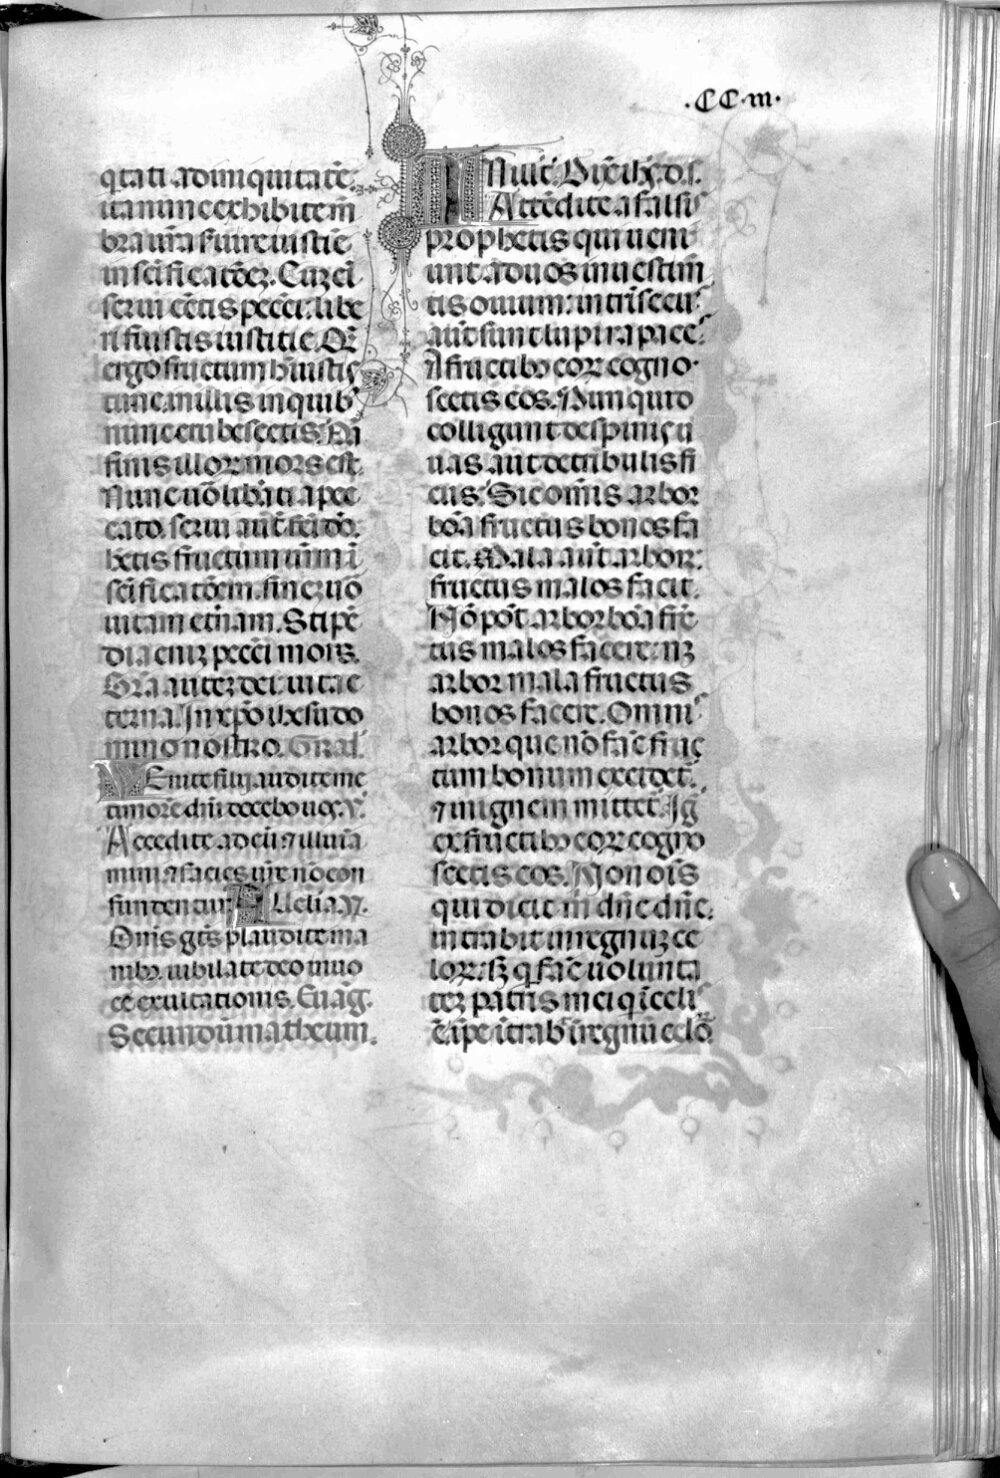 .CC.III.
q̄tati ad iniquitatē.
ita nunc exhibite mē
bra ur̄a seruire iustiē
in sc̄ificatōeȝ. Cuȝ eī
serui eētis pecc̄i: libe
ri fuistis iustitie. Quē
ergo fructum h̄uistis
tunc in illis in quibꝰ
nunc erubescetis. Nā
finis illoꝝ mors est.
Nunc uō libāti a pec
cato. serui aut̄ fc̄i dō.
hētis fructum ur̄m ī
sc̄ificatōem. fineȝ uō
uitam etn̄am. Stipē
dia eniȝ pecc̄i mors.
Gr̄a auteȝ dei uita e
terna. In xp̄o ihesu do
mino nostro. Gral̄.
Venite filij audite me
timorē dn̄i docebo uos. V̄.
Accedite ad eū ⁊ illumīa
mini ⁊ facies ur̄e nō con
fundentur. Alleluia. V̄.
Om̄s gētes plaudite ma
nibꝰ. iubilate deo in uo
ce exultationis. Euāg.
Secundū matheum.
IN illo t̄. Dix̄ ih̄s. d. s.
Attēdite a falsis
prophetis qui ueni
unt ad uos in uestim̄
tis ouium: intrīsecus
aut̄ sunt lupi rapaces.
A fructibꝰ eoꝝ cogno
scetis eos. Nunquid
colligunt de spinis u
uas. aut de tribulis fi
cus. Sic om̄is arbor
bōa fructus bonos fa
cit. Mala aut̄ arbor:
fructus malos facit.
Nō pōt arbor bōa fruc̄
tus malos facere: nȝ
arbor mala fructus
bonos facere. Omnis
arbor que nō fac̄ fruc
tum bonum excidet̄.
⁊ in ignem mittet̄. Iḡ
ex fructibꝰ eoꝝ cogno
scetis eos. Non om̄is
qui dicit m̄ dn̄e dn̄e.
intrabit in regnuȝ ce
loꝝ: sȝ q̄ fac̄ uolunta
teȝ patris mei q̄ ī celis
ē ipe ītrab̄ ī regnū celoꝝ